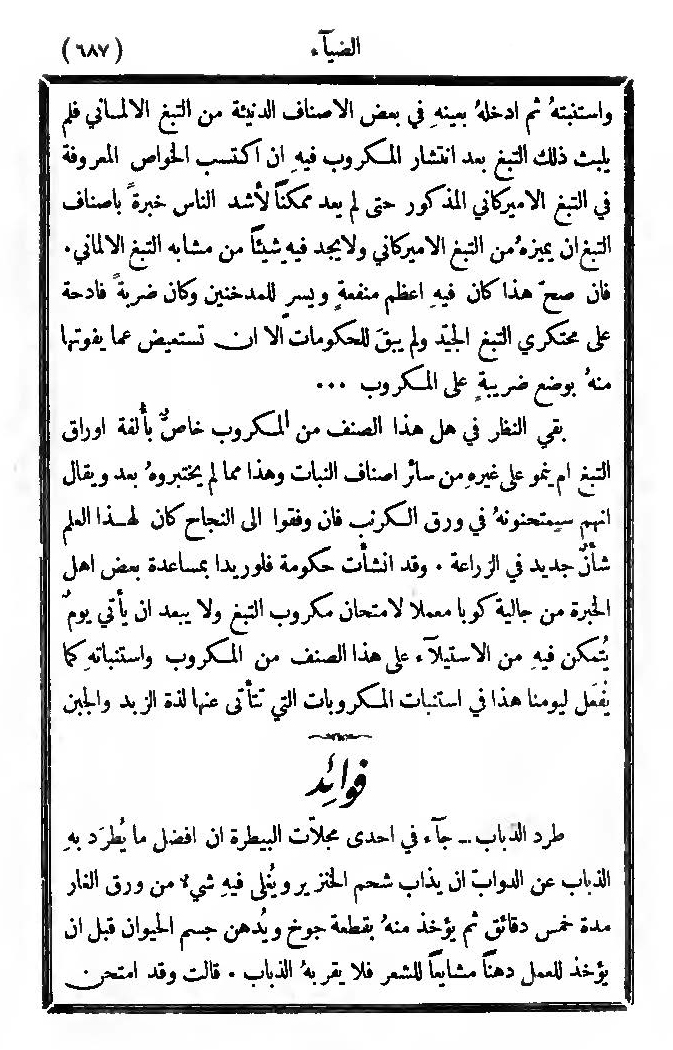 الضيآء (٦٨٧)
واستنبتهُ ثم ادخلهُ بعينهِ في بعض الاصناف الدنيئة من التبغ الالماني فلم
يلبث ذلك التبغ بعد انتشار المكروب فيهِ ان اكتسب الخواص المعروفة
في التبغ الاميركاني المذكور حتى لم يعد ممكناً لأشد الناس خبرةً باصناف
التبغ ان يميزهُ من التبغ الاميركاني ولا يجد فيه شيئاً من مشابه التبغ الالماني .
فان صحّ هذا كان فيهِ اعظم منفعةٍ ويسرٍ للمدخنين وكان ضربةً فادحة
على محتكري التبغ الجيّد ولم يبقَ للحكومات الا ان تستعيض عما يفوتها
منهُ بوضع ضريبةٍ على المكروب ...
بقي النظار في هل هذا الصنف من المكروب خاصٌّ بألفة اوراق
التبغ ام ينمو على غيرهِ من سائر اصناف النبات وهذا مما لم يختبروهُ بعد ويقال
انهم سيمتحنونهُ في ورق الكرنب فان وفقوا الى النجاح كان لهذا العلم
شأنٌ جديد في الزراعة . وقد انشأت حكومة فلوريدا بمساعدة بعض اهل
الخبرة من جالية كوبا معملاً لامتحان مكروب التبغ ولا يبعد ان يأتي يومٌ
يُتمكن فيهِ من الاستيلآء على هذا الصنف من المكروب واستنباتهِ كما
يُفعَل ليومنا هذا في استنبات المكروبات التي تتأتى عنها لذة الزبد والجبن
فوائِد
طرد الذباب – جآء في احدى مجلّات البيطرة ان افضل ما يُطرَد بهِ
الذباب عن الدوابّ ان يذاب شحم الخنزير ويُغلى فيهِ شيءٌ من ورق الغار
مدة خمس دقائق ثم يؤخذ منهُ بقطعة جوخ ويُدهن جسم الحيوان قبل ان
يؤخذ للعمل دهناً مشايعاً للشعر فلا يقربهُ الذباب . قالت وقد امتحن